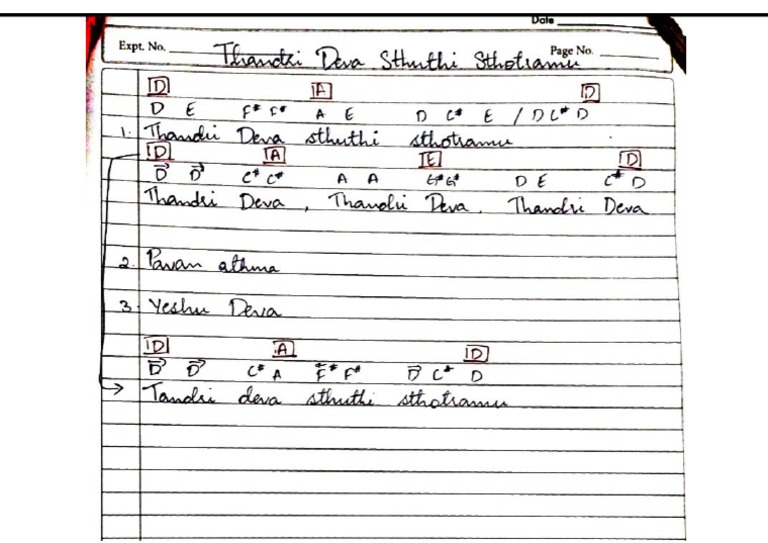 Date
Expt. No. Thandri Deva Sthuthi Sthotramu Page No.
D A D
D E F# F# A E D C# E / D C# D
1. Thandri Deva sthuthi sthotramu
D A E D
D D C# C# A A G# G# D E C# D
Thandri Deva, Thandri Deva, Thandri Deva
2. Pavan athma
3. Yeshu Deva
D A D
D D C# A F# F# D C# D
→ Tandri deva sthuthi sthotramu